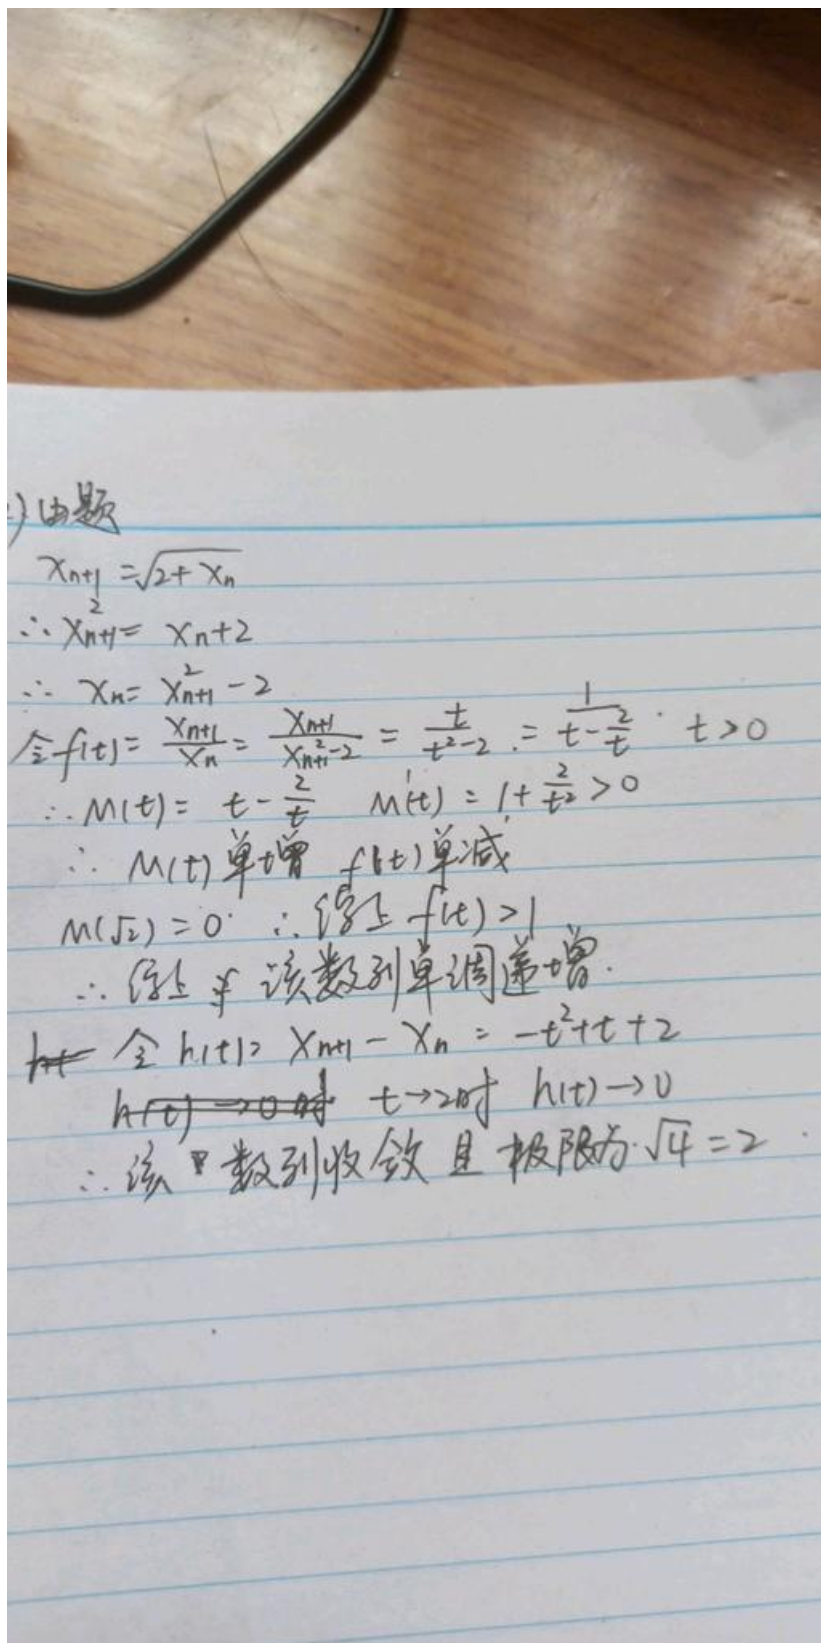 )由题
xₙ₊₁ = √(2+xₙ)
∴ xₙ₊₁² = xₙ+2
∴ xₙ = xₙ₊₁² - 2
令f(t) = xₙ₊₁/xₙ = xₙ₊₁/(xₙ₊₁²-2) = t/(t²-2) = 1/(t-2/t) t>0
∴ M(t) = t - 2/t M'(t) = 1+2/t² >0
∴ M(t)单增 f(t)单减
M(√2) = 0 ∴ 综上 f(t)>1
∴ 综上 该数列单调递增.
令 h(t) = xₙ₊₁ - xₙ = -t²+t+2
t→2时 h(t)→0
∴ 该数列收敛且极限为√4=2